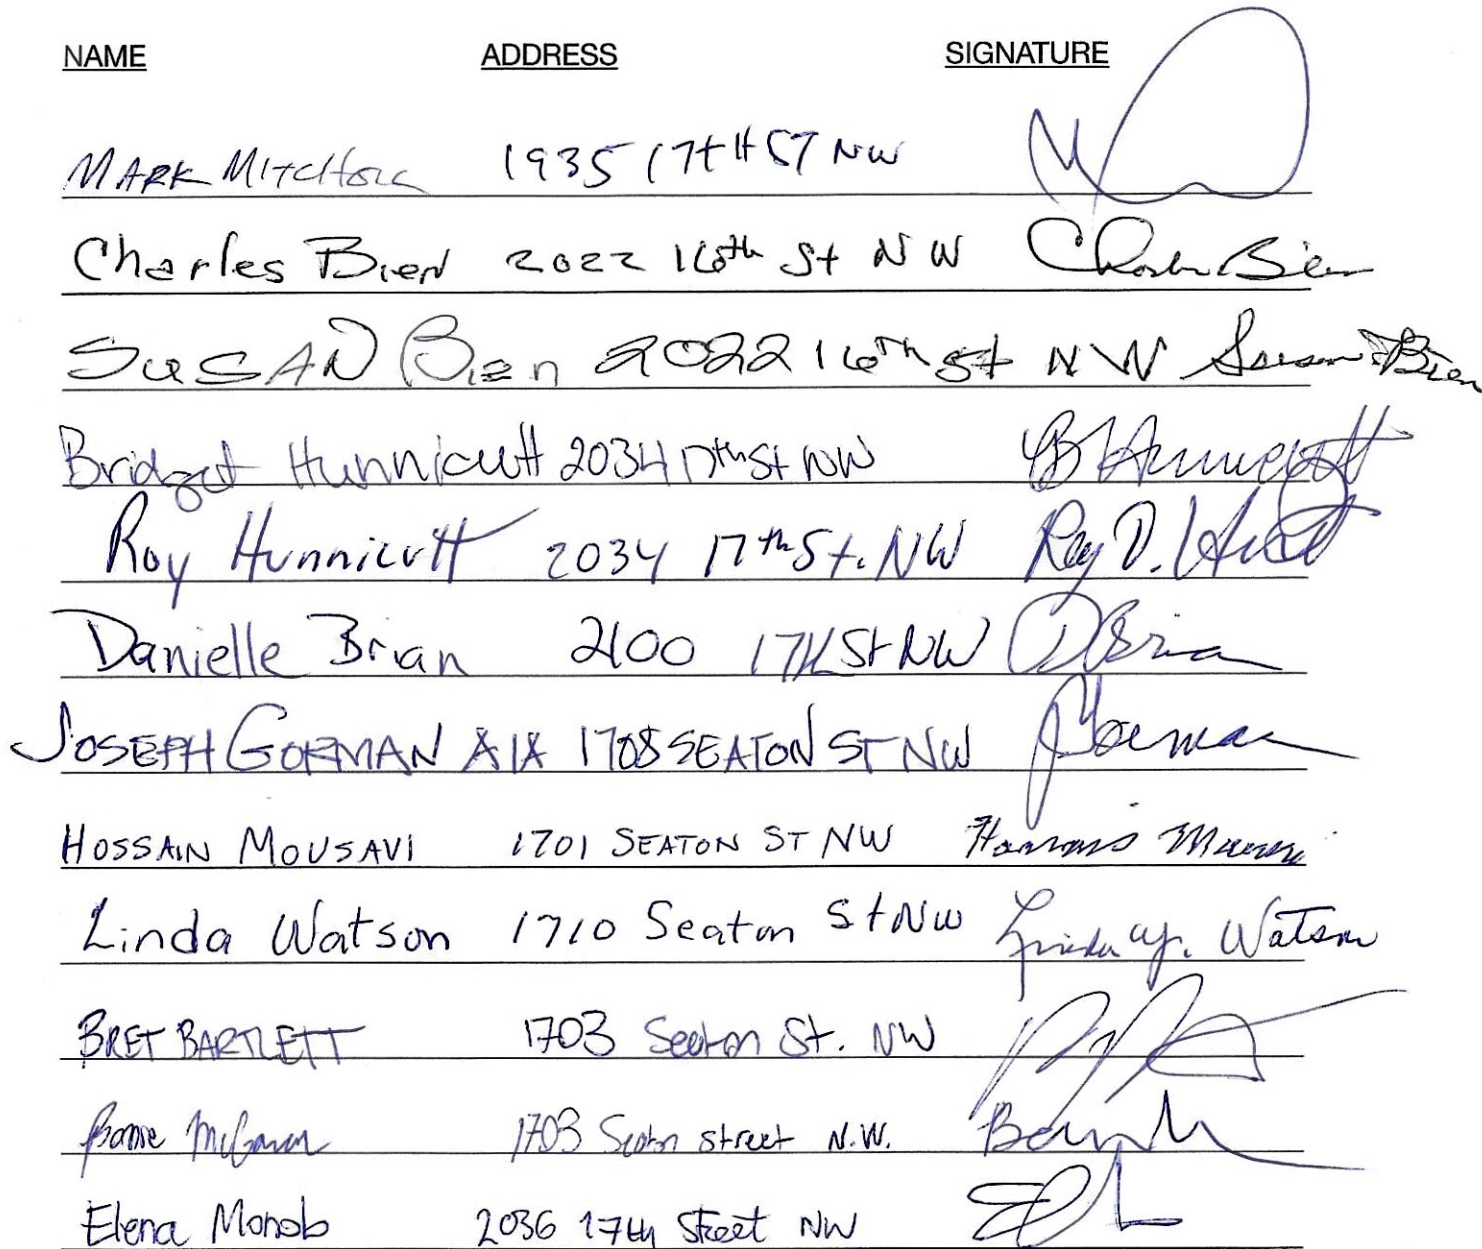 NAME ADDRESS SIGNATURE
MARK 1935 17TH ST NW
Charles Bien 2022 16th St NW Charles Bien
SUSAN Bien 2022 16th St NW Susan Bien
Bridget Hunnicutt 2034 17th St NW B Hunnicutt
Roy Hunnicutt 2034 17th St. NW Roy D.
Danielle Brian 2100 17th St NW DBrian
JOSEPH GORMAN AIA 1708 SEATON ST NW JGorman
HOSSAIN MOUSAVI 1701 SEATON ST NW
Linda Watson 1710 Seaton St NW Linda Y. Watson
BRET BARTLETT 1703 Seaton St. NW
1703 Seaton street N.W.
Elena 2036 17th Street NW